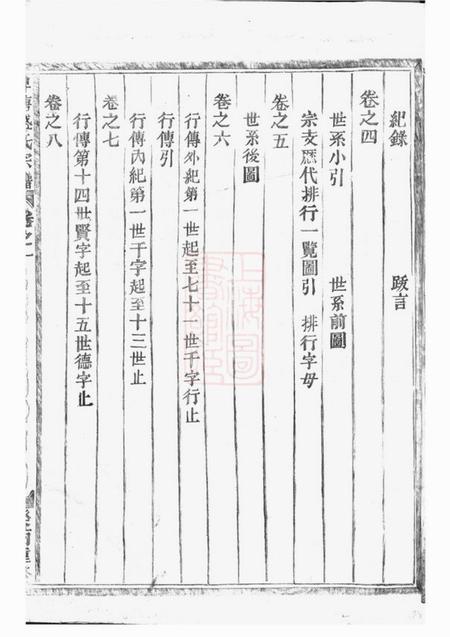 紀錄　跋言
卷之四
世系小引　世系前圖
宗支歷代排行一覽圖引　排行字母
卷之五
世系後圖
卷之六
行傳外紀第一世起至七十一世千字行止
行傳引
卷之七
行傳內紀第一世千字起至十三世止
行傳第十四世賢字起至十五世德字止
卷之八
氏宗譜 卷之一